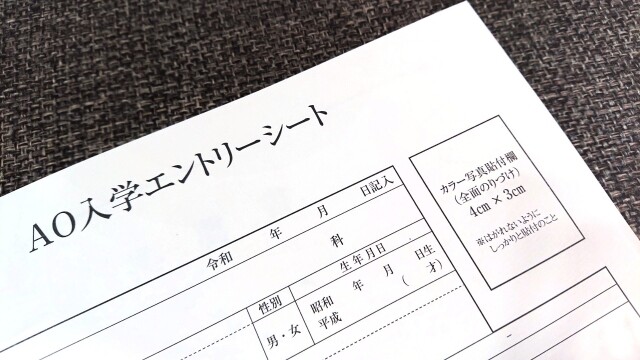 AO入学エントリーシート
令和 年 月 日記入
カラー写真貼付欄
(全面のりづけ)
4cm × 3cm
※はがれないように
しっかりと貼付のこと
科
性別 生年月日
男・女 昭和 年 月 日生
平成 ( 才)